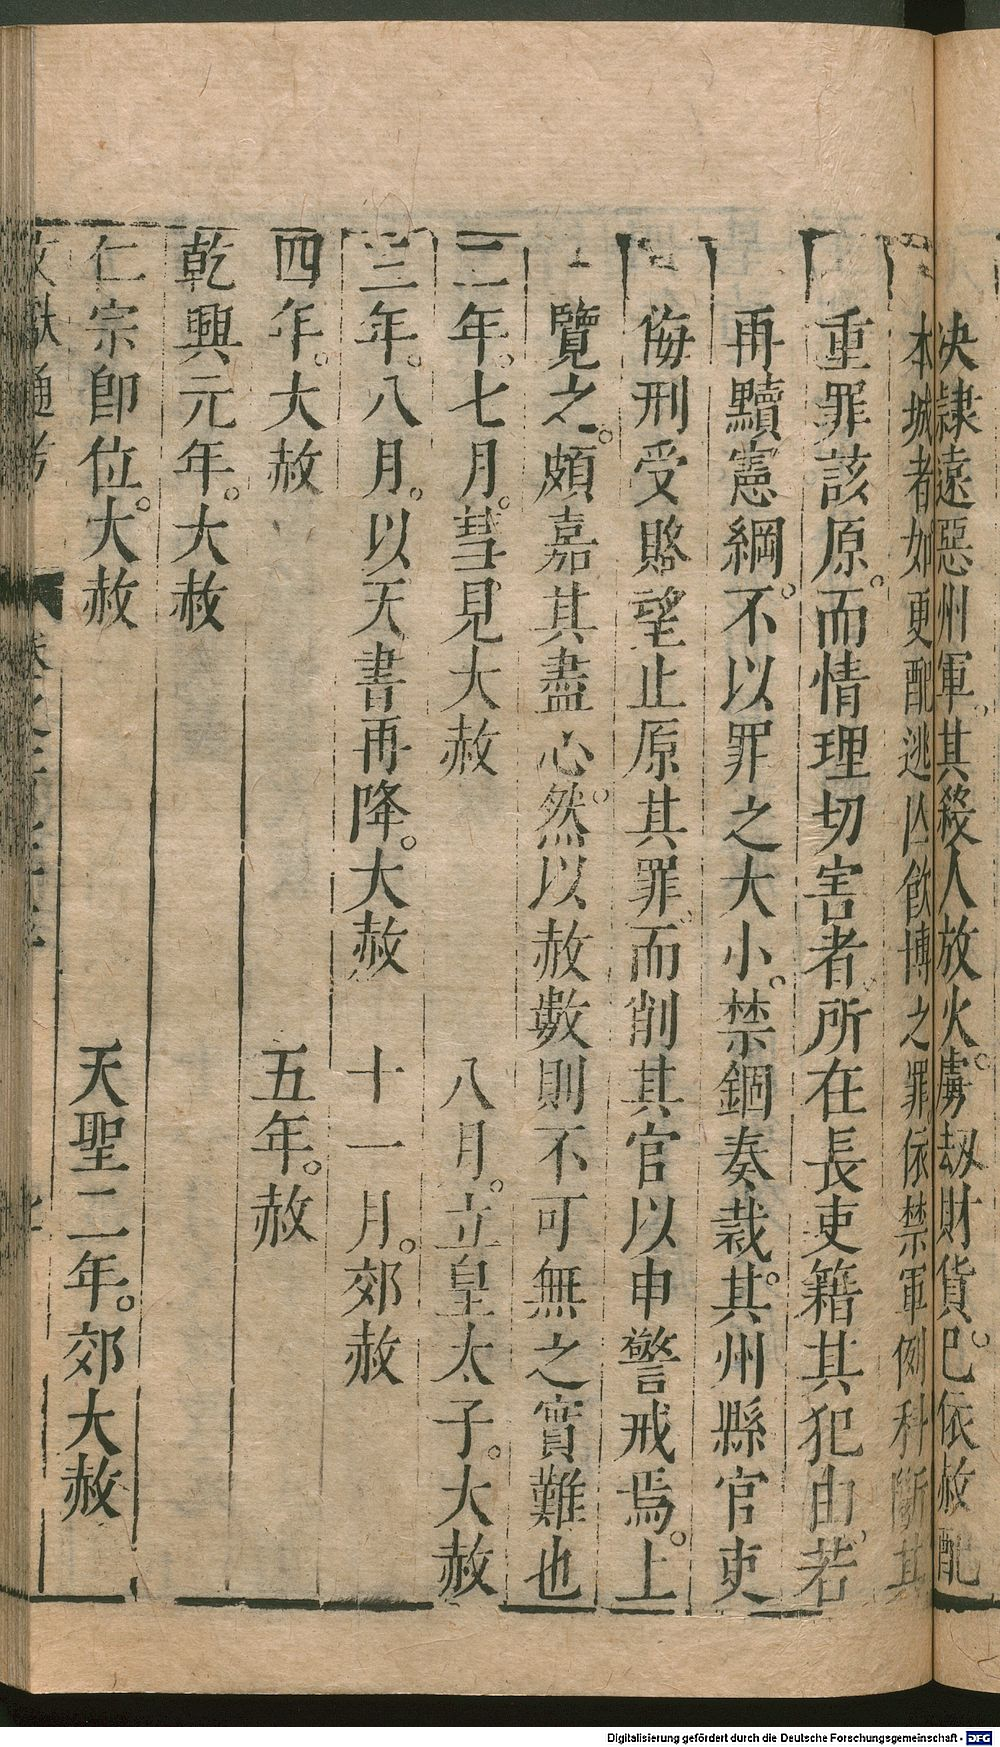 决隷遠惡州軍其殺人放火。虜刼財貨。已依赦配
本城者如更配逃亾飲博之罪依禁軍例科斷其
重罪該原。而情理切害者。所在長吏籍其犯由。若
再黷憲綱。不以罪之大小。禁錮奏裁。其州縣官吏
侮刑受賂望止原其罪。而削其官以申警戒焉。上
覽之。頗嘉其盡心。然以赦數則不可無之實難也
二年。七月。彗見大赦 八月。立皇太子。大赦
三年。八月。以天書再降。大赦 十一月。郊赦
四年。大赦 五年。赦
乾興元年。大赦
仁宗卽位。大赦 天聖二年。郊大赦
文獻通考
Digitalisierung gefördert durch die Deutsche Forschungsgemeinschaft - DFG